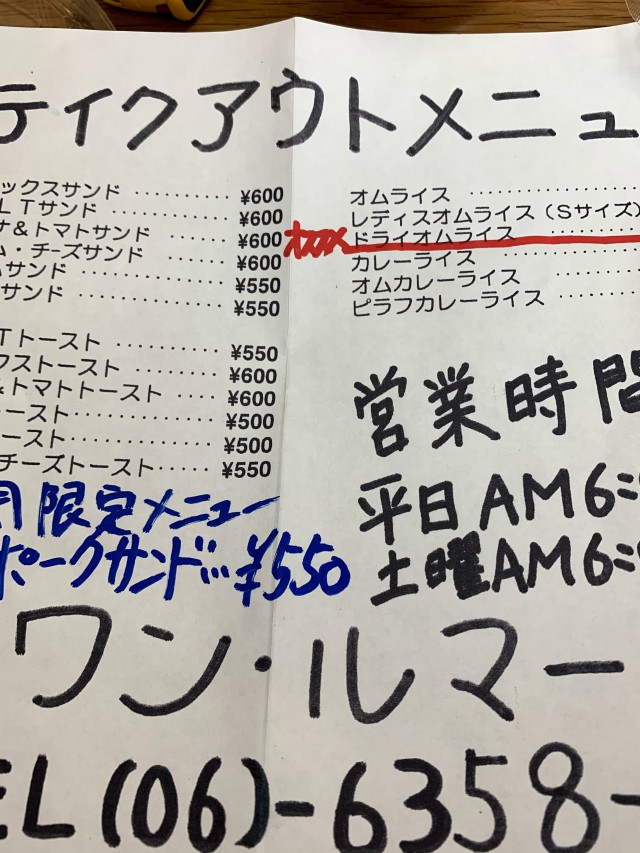 テイクアウトメニュ
ックスサンド ・・・・・・・・・・ ¥600
LTサンド ・・・・・・・・・・ ¥600
ナ&トマトサンド ・・・・・・・・ ¥600
ム・チーズサンド ・・・・・・・ ¥600
サンド ・・・・・・・・・・ ¥550
サンド ・・・・・・・・・・ ¥550
Tトースト ・・・・・・・・ ¥550
クストースト ・・・・・・・・ ¥600
&トマトトースト ・・・・・ ¥600
ースト・・・・・・・・・・・ ¥500
ースト・・・・・・・・・・・ ¥500
チーズトースト・・・・・ ¥550
月限定メニュー
ポークサンド・・・¥550
オムライス ・・・・・・・・・・
レディスオムライス(Sサイズ)
ドライオムライス ・・・・・・
カレーライス ・・・・・・・・
オムカレーライス ・・・・・・
ピラフカレーライス ・・・・・
営業時間
平日AM6:
土曜AM6:
ワン・ルマー
EL(06)-6358-